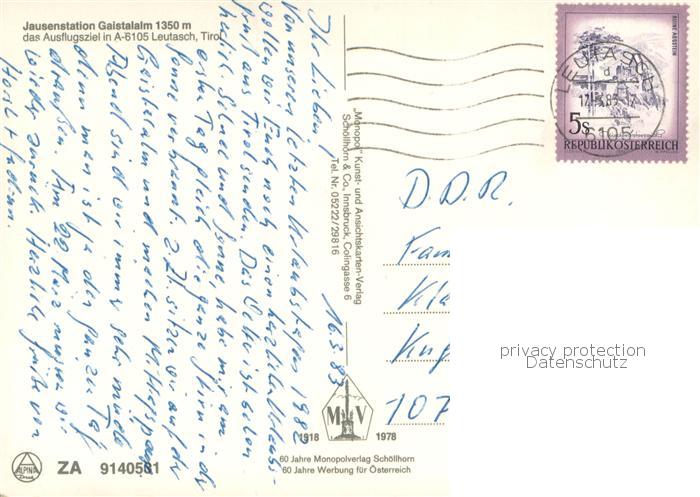 Jausenstation Gaistalalm 1350 m
das Ausflugsziel in A-6105 Leutasch, Tirol
Ihr Lieben!
Von unseren letzten Urlaubstagen 1982
wollen wir Euch noch einen herzlichen Urlaubs-
gruß aus Tirol senden. Das Wetter ist
herrlich. Schnee und Sonne, habe mir am
ersten Tag gleich die ganze Stirn in der
Sonne verbrannt. Z. Zt. sitzen wir auf der
Gaistalalm und machen Mittagspause.
Abend sind wir immer sehr müde
denn man ist ja den ganzen Tag
draußen. Am 20 März müssen wir
wieder zurück. Herzliche Grüße von
Horst +
16.3.83
"Monopol" Kunst- und Ansichtskarten-Verlag
Schöllhorn & Co., Innsbruck, Colingasse 6
Tel. Nr. 05222/29816
RUINE AGGSTEIN
5s
REPUBLIK ÖSTERREICH
LEUTASCH
6105
D.D.R.
Fam
Kla
107
privacy protection
Datenschutz
M V
1918 1978
60 Jahre Monopolverlag Schöllhorn
60 Jahre Werbung für Österreich
ALPINA
Druck
ZA 9140581